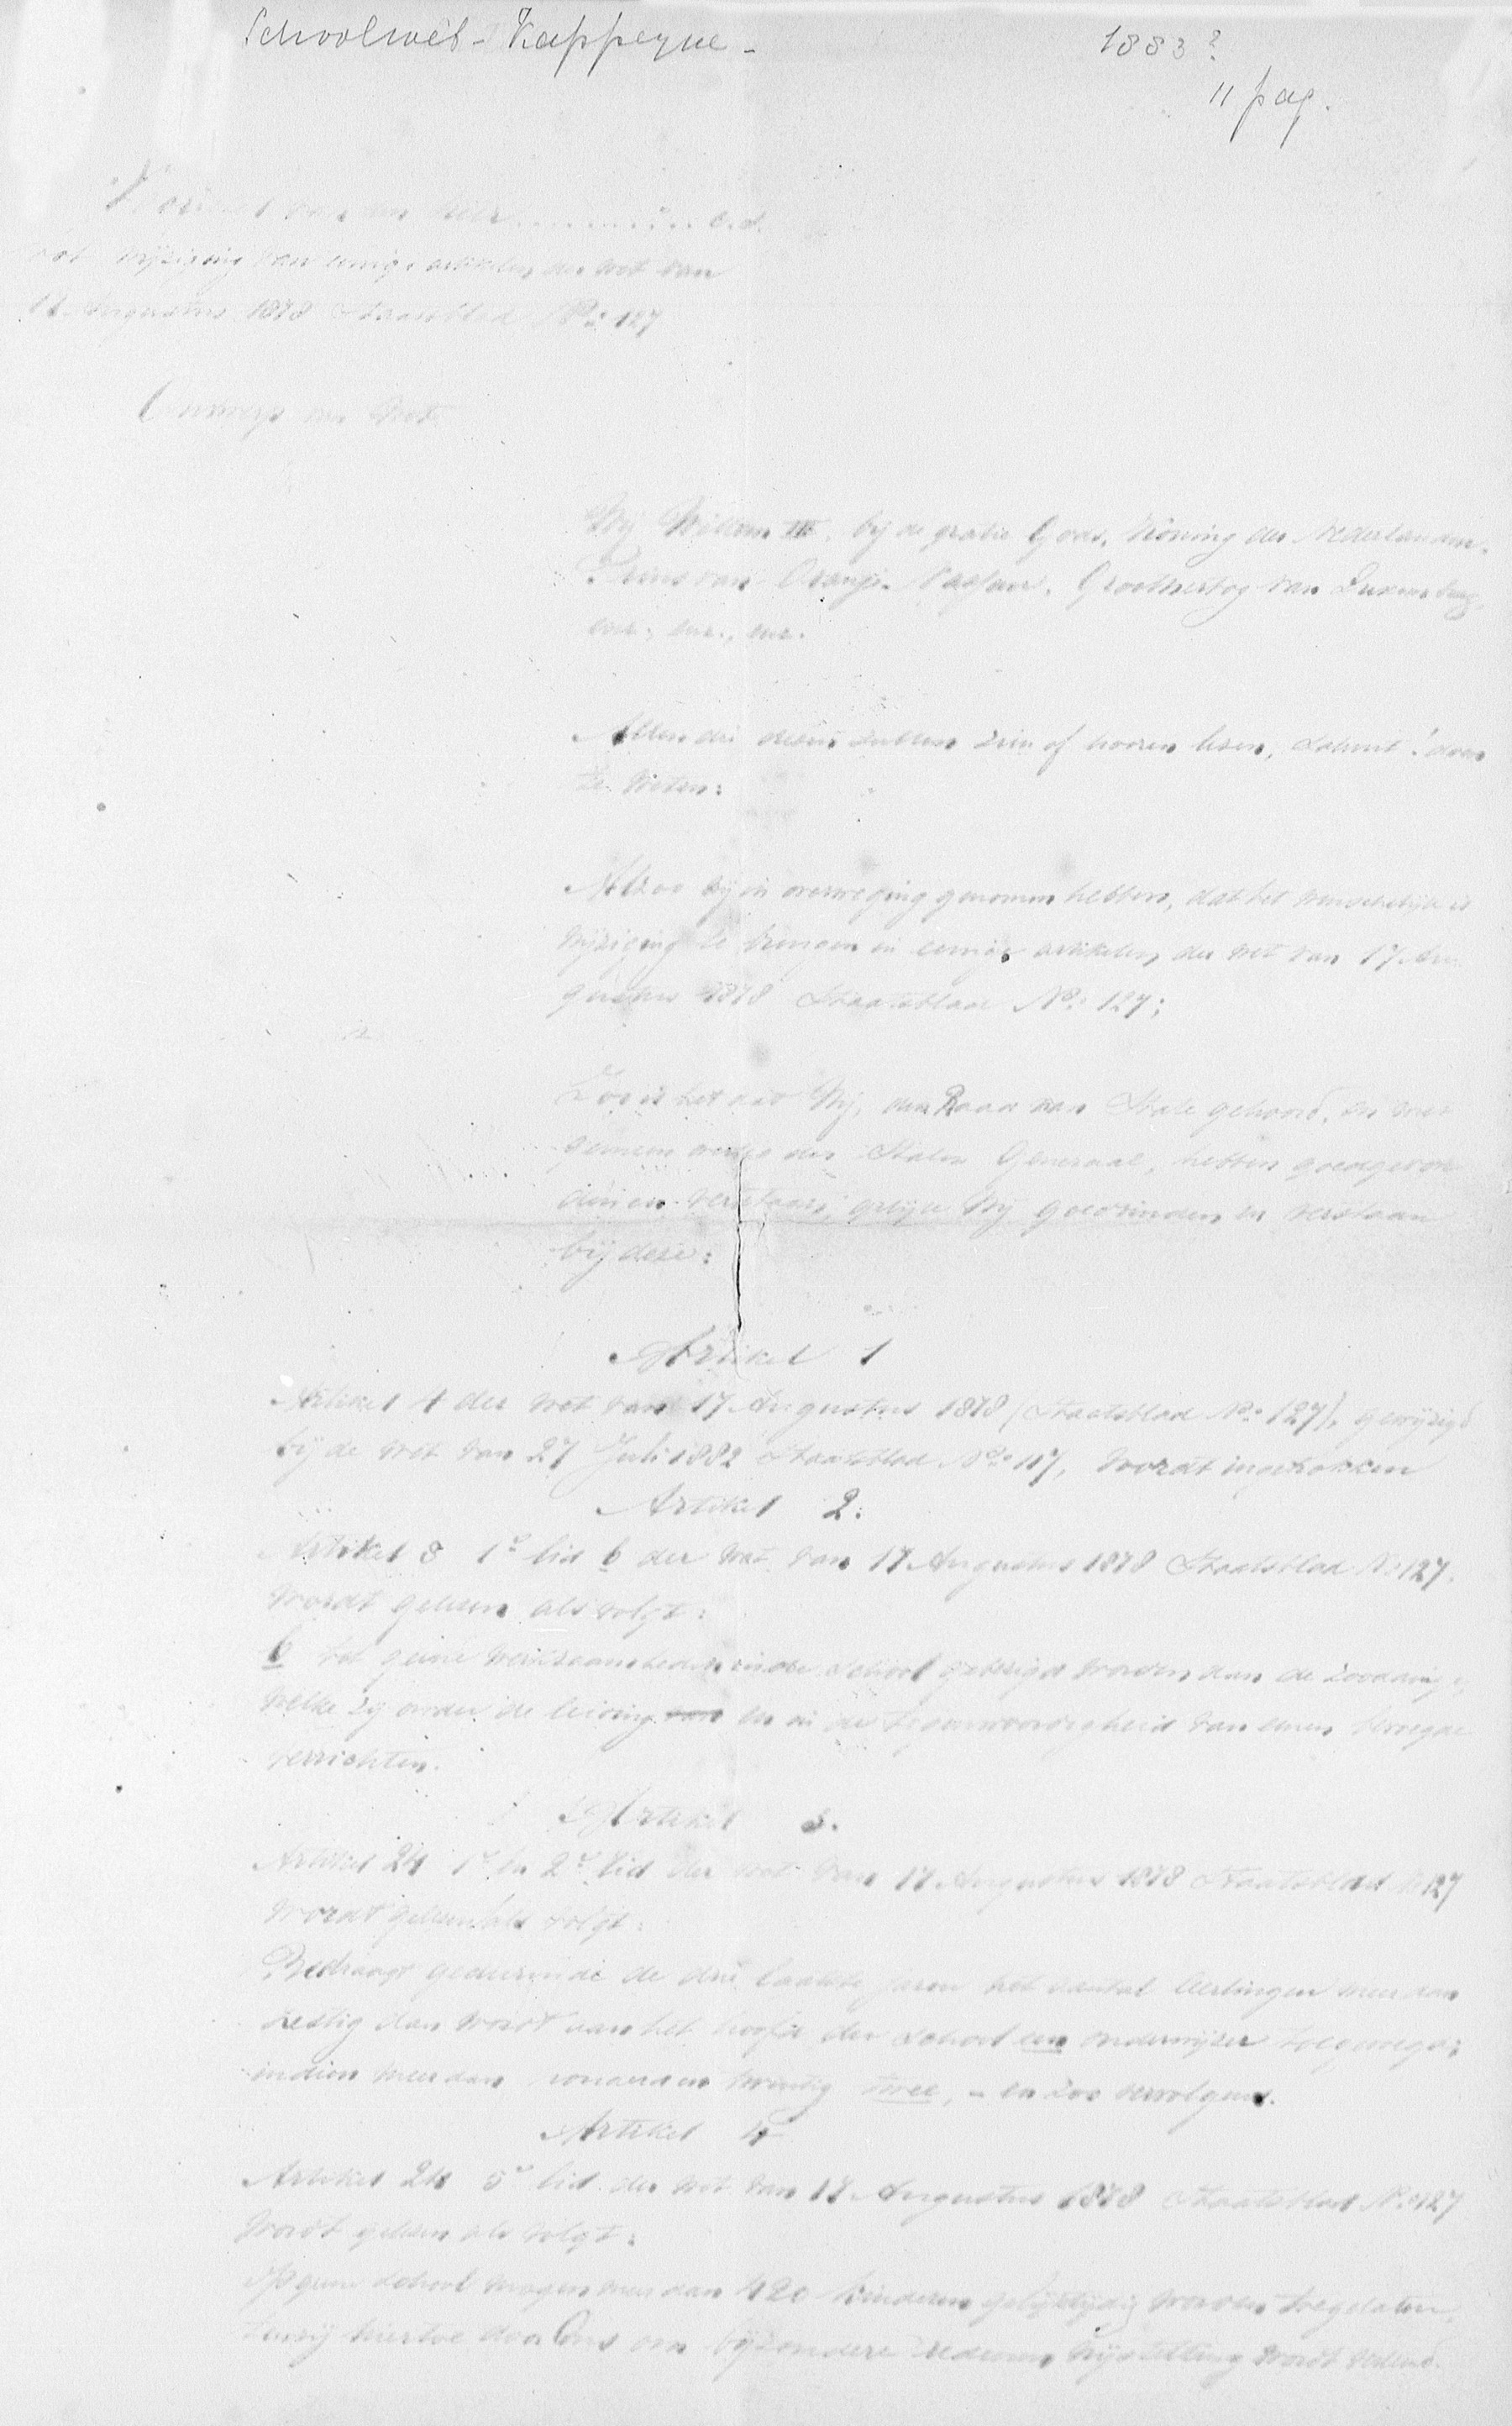 Schoolwet - Kappeyne -
1883?
11 pag.
Voorstel van den heer ............ c.s.
tot wijziging van eenige artikelen der wet van
17 Augustus 1878 Staatsblad No: 127
Ontwerp van Wet
Wij Willem III, bij de gratie Gods, Koning der Nederlanden,
Prins van Oranje-Nassau, Groothertog van Luxemburg,
enz., enz., enz.
Allen die deze zullen zien of hooren lezen, salut! doen
te weten:
Alzoo Wij in overweging genomen hebben, dat het wenschelijk is
wijziging te brengen in eenige artikelen der wet van 17 Au
gustus 1878 Staatsblad No: 127;
Zoo is het dat Wij, den Raad van State gehoord, en met
gemeen overleg der Staten Generaal, hebben goedgevon
den en verstaan, gelijk Wij goedvinden en verstaan
bij deze:
Artikel 1
Artikel 4 der wet van 17 Augustus 1878 (Staatsblad No: 127), gewijzigd
bij de wet van 27 Juli 1882 Staatsblad No: 117, wordt ingetrokken
Artikel 2.
Artikel 8 1e lid b der wet van 17 Augustus 1878 Staatsblad No: 127.
wordt gelezen als volgt:
b tot geene werkzaamheden in de school gebezigd worden dan de zoodanige,
welke zij onder de leiding van en in de tegenwoordigheid van eenen bevoegde
verrichten.
Artikel 3.
Artikel 24 1e en 2e lid der wet van 17 Augustus 1878 Staatsblad No 127
wordt gelezen als volgt:
Bedraagt gedurende de drie laatste jaren het aantal leerlingen meer dan
zestig dan wordt aan het hoofd der school een onderwijzer toegevoegd;
indien meer dan honderd en twintig twee, - en zoo vervolgens.
Artikel 4
Artikel 24 5e lid der wet van 17 Augustus 1878 Staatsblad No: 127
wordt gelezen als volgt:
Op geene school mogen meer dan 420 kinderen gelijktijdig worden toegelaten,
tenzij hiertoe door Ons om bijzondere redenen vrijstelling wordt verleend.